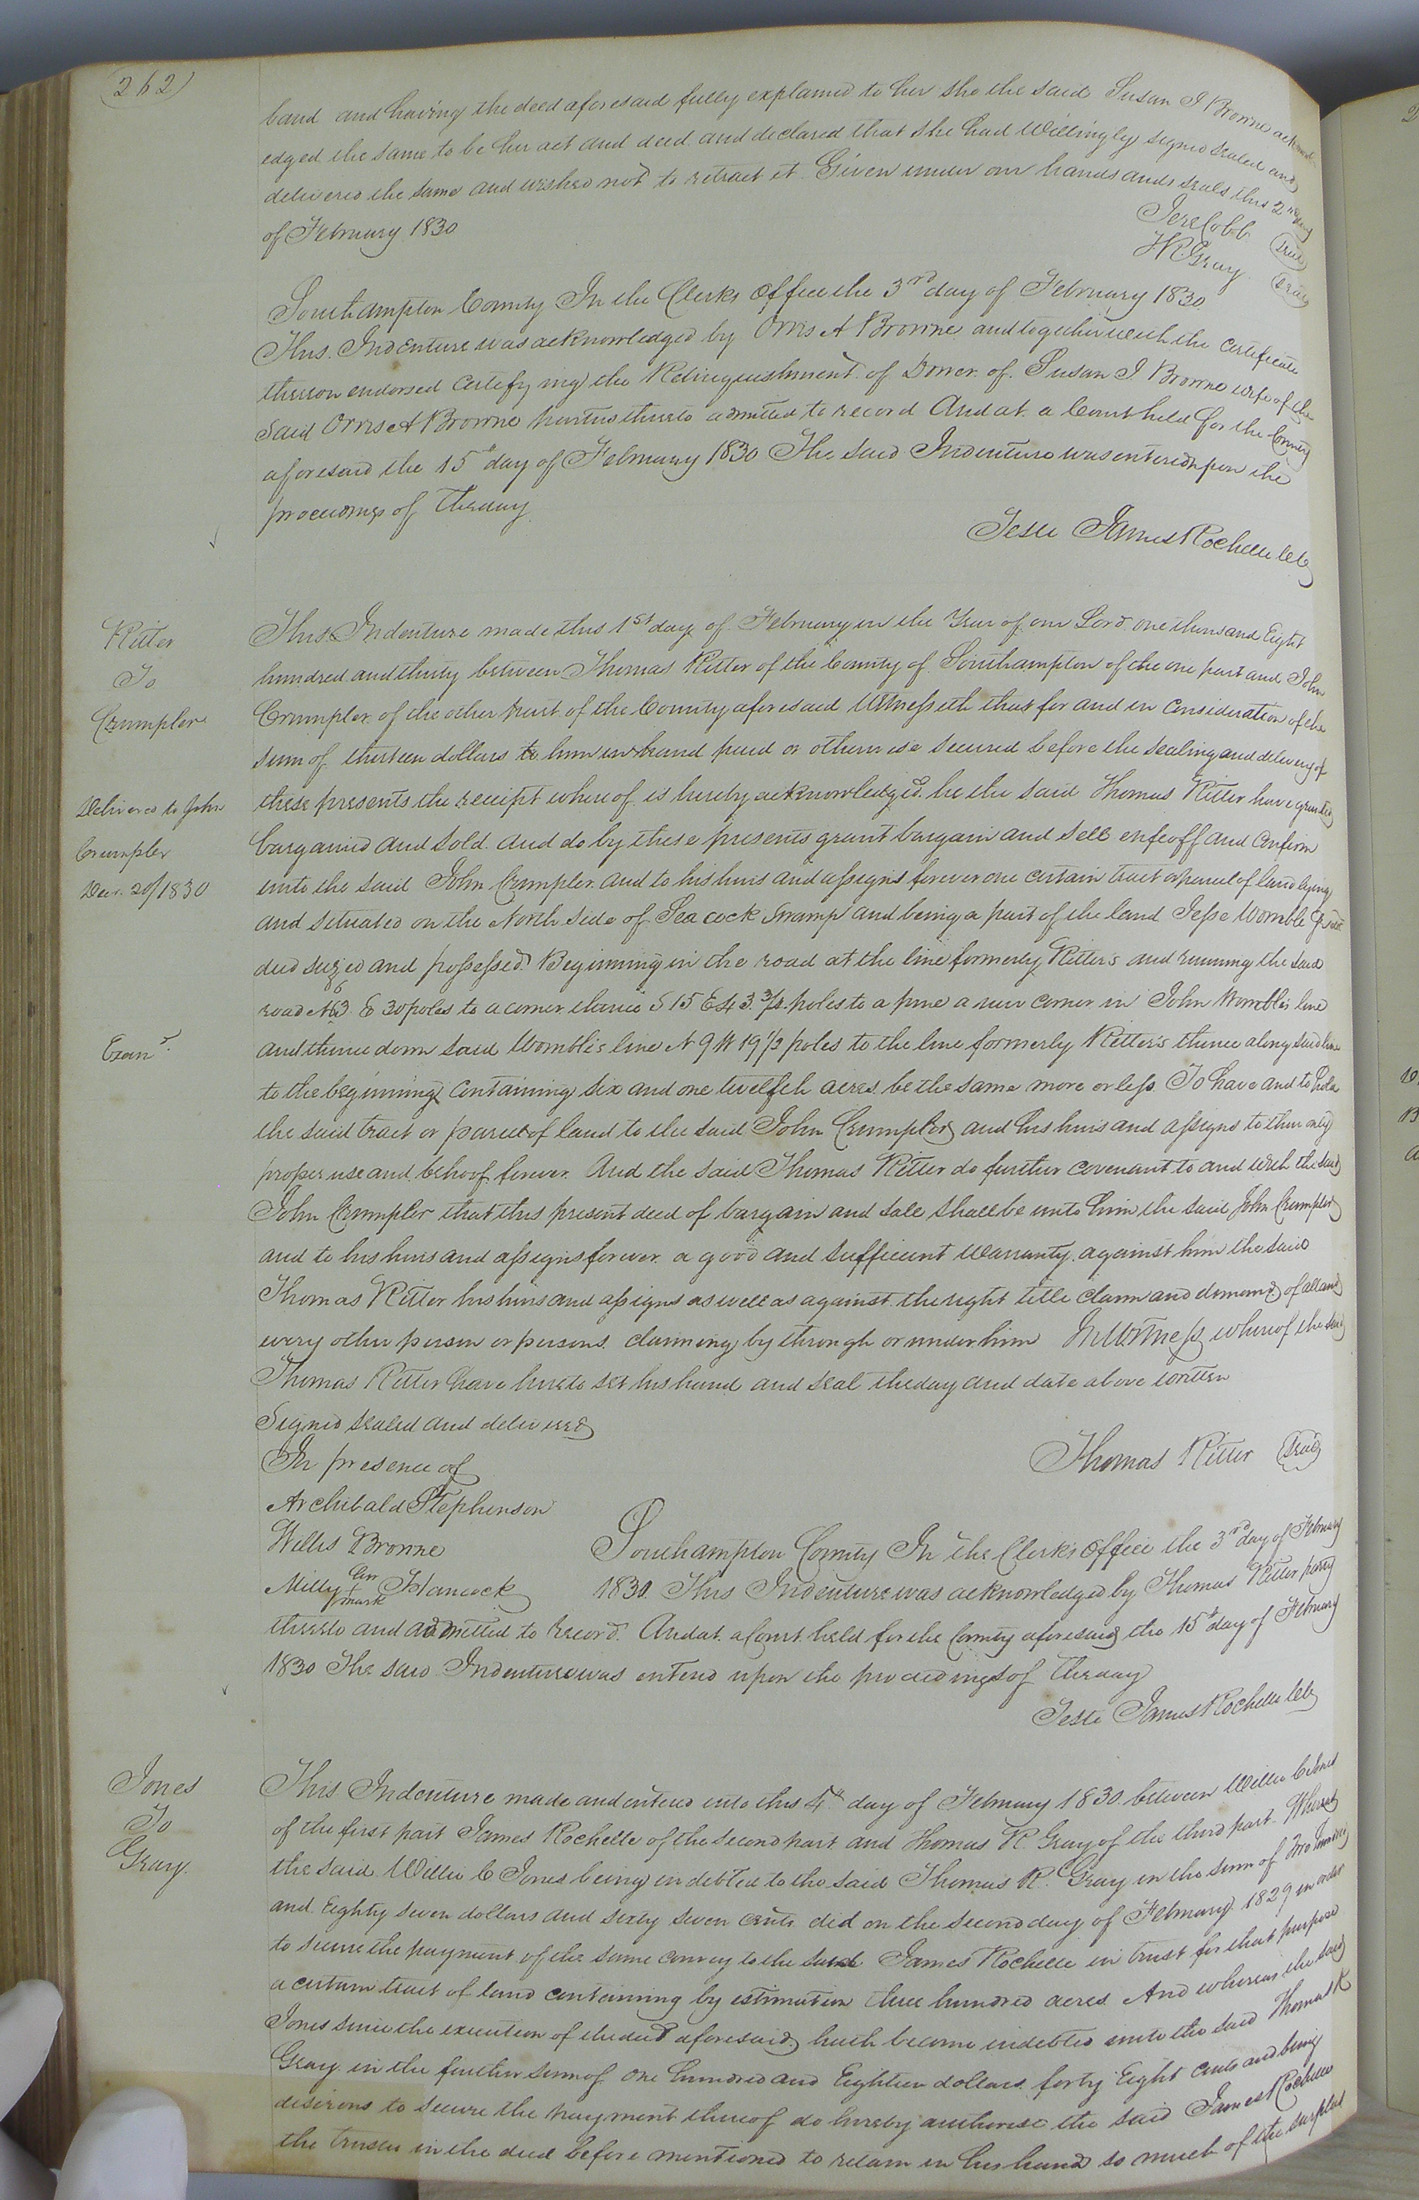 (262)
band and having the deed aforesaid fully explained to her she the said Susan J Browne acknowl
edged the same to be her act and deed and declared that she had Willingly signed sealed and
delivered the same and wished not to retract it Given under our hands and seals this 2nd day
of February 1830
Jere Cobb (Seal)
H R Gray (Seal)
Southampton County In the Clerks office the 3rd day of February 1830
This Indenture was acknowledged by Orris A Browne and together with the certificate
thereon endorsed certifying the Relinquishment of Dower of Susan J Browne wife of the
said Orris A Browne parties thereto admitted to record And at a Court held for the County
aforesaid the 15th day of February 1830 The said Indenture was entered upon the
proceedings of the day
Teste James Rochelle Clk
Ritter
To
Crumpler
Delivered to John
Crumpler
Decr. 20/1830
Examd.
This Indenture made this 1st day of February in the Year of our Lord one thousand Eight
hundred and thirty between Thomas Ritter of the County of Southampton of the one part and John
Crumpler of the other part of the County aforesaid Witnesseth that for and in Consideration of the
sum of thirteen dollars to him in hand paid or otherwise secured before the sealing and delivery of
these presents the receipt whereof is hereby acknowledged he the said Thomas Ritter have granted
bargained and sold and do by these presents grant bargain and sell enfeoff and Confirm
unto the said John Crumpler and to his heirs and assigns forever one certain tract or parcel of land lying
and situated on the North side of Seacock Swamp and being a part of the land Jesse Womble
died seized and possessed Beginning in the road at the line formerly Ritters and running the said
road N 63 E 30 poles to a corner thence S 15 E 43 3/4 poles to a pine a new corner in John Wombles line
and thence down said Wombles line N 9 W 19 1/3 poles to the line formerly Ritter's thence along said line
to the beginning containing six and one twelfth acres be the same more or less To have and to hold
the said tract or parcel of land to the said John Crumpler and his heirs and assigns to their only
proper use and behoof forever And the said Thomas Ritter do further covenant to and with the said
John Crumpler that this present deed of bargain and sale shall be unto him the said John Crumpler
and to his heirs and assigns forever a good and sufficient Warranty against him the said
Thomas Ritter his heirs and assigns as well as against the right title claim and demand of all and
every other person or persons claiming by through or under him In Witness whereof the said
Thomas Ritter have hereto set his hand and seal the day and date above written
Signed sealed and delivered
In presence of
Thomas Ritter (Seal)
Archibald Stephenson
Willis Browne
Milly her + mark Hancock
Southampton County In the Clerk's office the 3rd day of February
1830 This Indenture was acknowledged by Thomas Ritter party
thereto and admitted to record. And at a Court held for the County aforesaid the 15th day of February
1830 The said Indenture was entered upon the proceedings of the day
Teste James Rochelle Clk
Jones
To
Gray.
This Indenture made and entered into this 4th day of February 1830 between Willie C Jones
of the first part James Rochelle of the second part and Thomas R. Gray of the third part. Whereas
the said Willie C Jones being indebted to the said Thomas R. Gray in the sum of Two hundred
and Eighty seven dollars and sixty seven cents did on the second day of February 1829 in order
to secure the payment of the same convey to the said James Rochelle in trust for that purpose
a certain tract of land containing by estimation three hundred acres And whereas the said
Jones since the execution of the deed aforesaid hath become indebted unto the said Thomas R
Gray in the further sum of one hundred and Eighteen dollars forty Eight cents and being
desirous to secure the payment thereof do hereby authorise the said James Rochelle
the trustee in the deed before mentioned to retain in his hands so much of the surplus